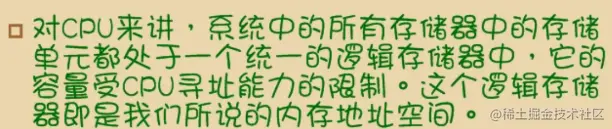 对CPU来讲，系统中的所有存储器中的存储
单元都处于一个统一的逻辑存储器中，它的
容量受CPU寻址能力的限制。这个逻辑存储
器即是我们所说的内存地址空间。
@稀土掘金技术社区